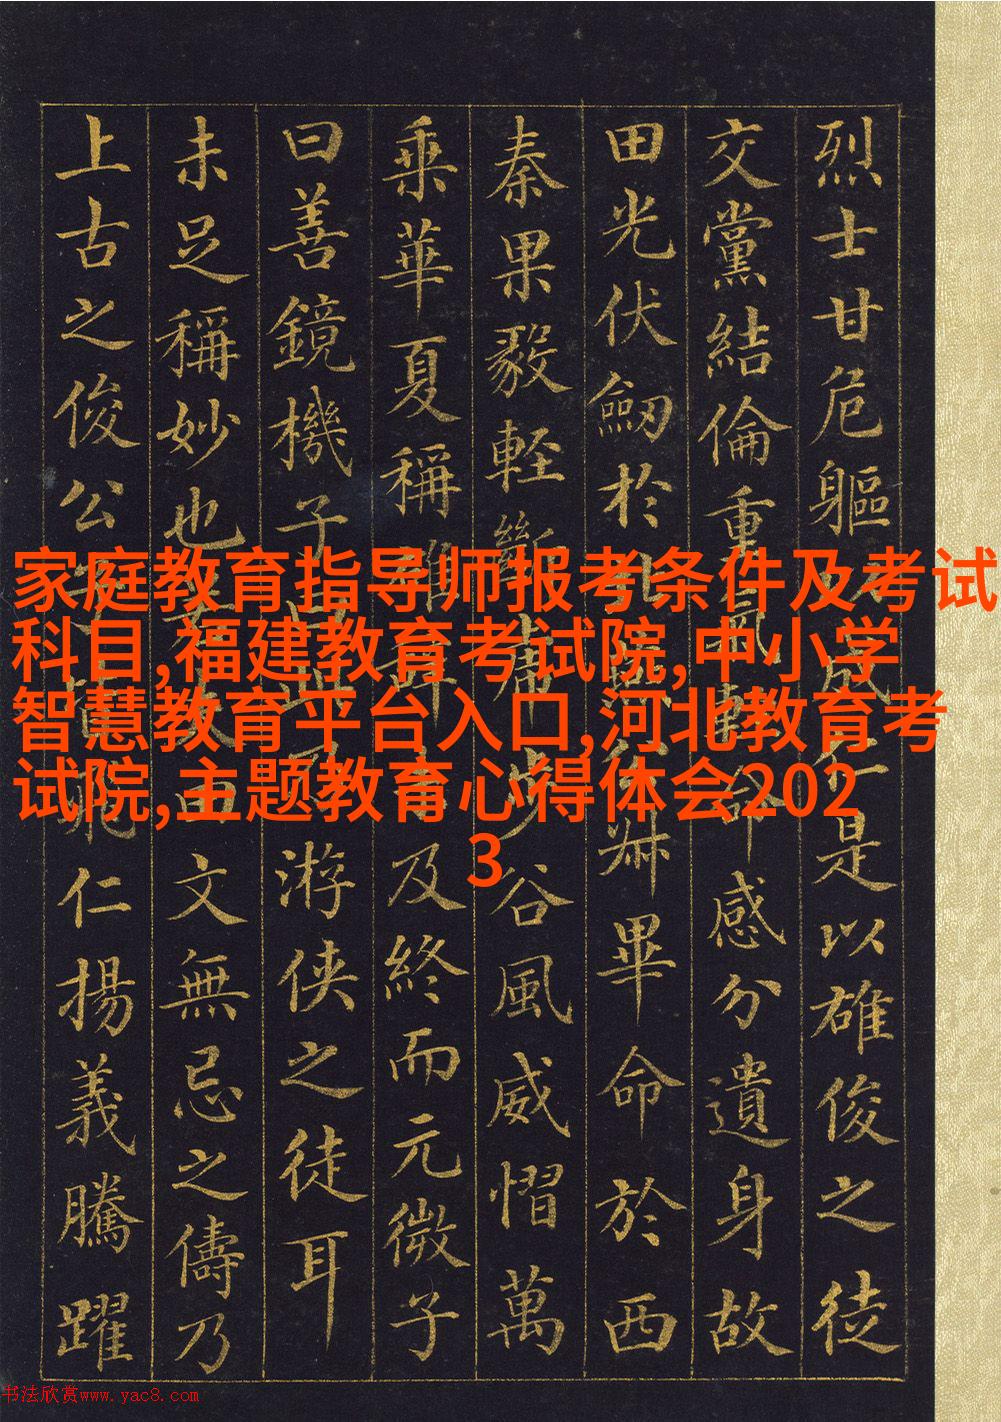 烈士甘危軀成仁是以雄俊之徒
交黨結倫重氣輕命感分遺身故
田光伏劒於北燕公叔畢命於西
秦果毅輕斷虎步谷風威慴萬
乘華夏稱雄辭未及終而元微子
曰善鏡機子曰此乃游俠之徒耳
未足稱妙也若夫田文無忌之儔乃
上古之俊公子皆飛仁揚義騰躍
家庭教育指导师报考条件及考试
科目,福建教育考试院,中小学
智慧教育平台入口,河北教育考
试院,主题教育心得体会202
3
书法欣赏www.yac8.com